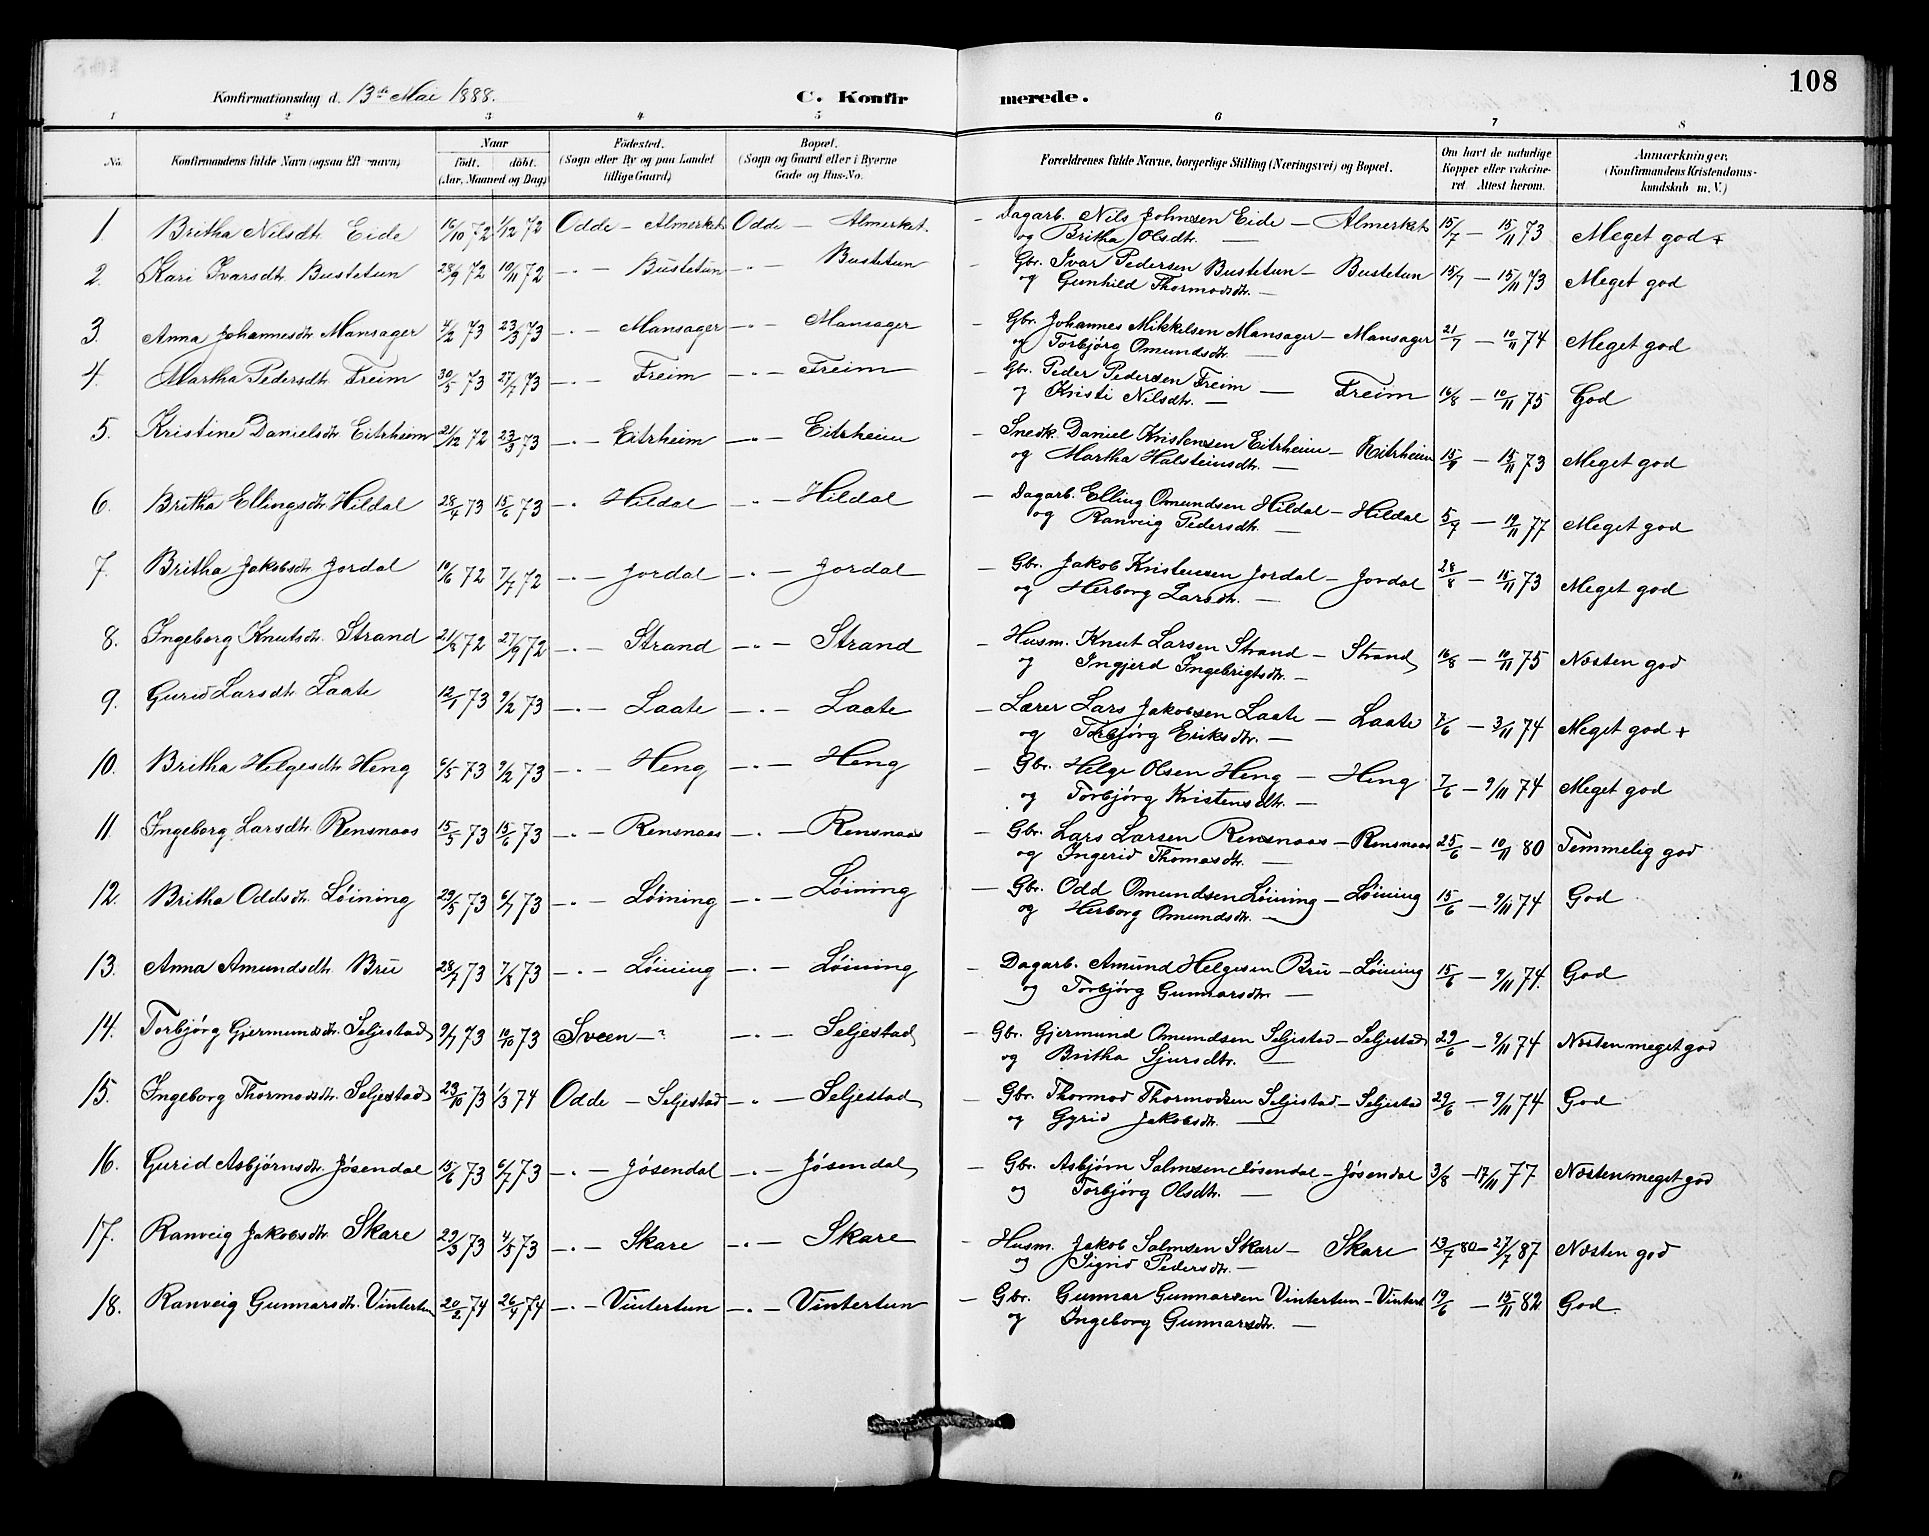 108
Konfirmationsdag d. 13de Mai 1888. C. Konfirmerede.
1 2 3 4 5 6 7 8
No. Konfirmandens fulde Navn (ogsaa Efternavn) Naar födt. döbt. (Aar, Maaned og Dag) Födested. (Sogn eller By og paa Landet tillige Gaard) Bopæl. (Sogn og Gaard eller i Byerne Gade og Hus-No. Forældrenes fulde Navne, borgerlige Stilling (Næringsvei) og Bopæl. Om havt de naturlige Kopper eller vakcineret. Attest herom. Anmærkninger. (Konfirmandens Kristendomskundskab m. V.)
1. Britha Nilsdtr. Eide 16/10 72 1/12 72 Odde – Almerket Odde – Almerket. – Dagarb. Nils Johnsen Eide – Almerket 15/7 – 15/11 73 Meget god +
og Britha Olsdtr. —
2. Kari Ivarsdtr. Bustetun 28/9 72 10/11 72 –〃– Bustetun –〃– Bustetun – Gbr. Ivar Pedersen Bustetun – Bustetun 15/7 – 15/11 73 Meget god
og Gunhild Thormodsdtr. —
3. Anna Johannesdtr. Mansager 4/2 73 23/3 73 –〃– Mansager –〃– Mansager – Gbr. Johannes Mikkelsen Mansager – Mansager 21/7 – 10/11 74 Meget god
og Torbjörg Omundsdtr. —
4. Martha Pedersdtr. Freim 30/5 73 27/7 73 –〃– Freim –〃– Freim – Gbr. Peder Pedersen Freim — Freim 16/8 – 10/11 75 God
og Kristi Nilsdtr. —
5. Kristine Danielsdtr. Eitrheim 21/12 72 23/3 73 –〃– Eitrheim –〃– Eitrheim – Snedk. Daniel Kristensen Eitrheim – Eitrheim 15/9 – 15/11 73 Meget god
og Martha Halsteinsdtr. —
6. Britha Ellingsdtr. Hildal 28/4 73 15/6 73 –〃– Hildal –〃– Hildal – Dagarb. Elling Omundsen Hildal – Hildal 5/9 – 19/11 77 Meget god
og Ranveig Pedersdtr. —
7. Britha Jakobsdtr. Jordal 10/6 72 7/7 72 –〃– Jordal –〃– Jordal – Gbr. Jakob Kristensen Jordal – Jordal 28/8 – 15/11 73 Meget god
og Herborg Larsdtr. —
8. Ingeborg Knutsdtr. Strand 21/8 72 27/9 72 –〃– Strand –〃– Strand – Husm. Knut Larsen Strand – Strand 16/8 – 10/11 75 Næsten god
og Ingjerd Ingebrigtsdtr. —
9. Gurid Larsdtr. Laate 12/1 73 9/2 73 –〃– Laate –〃– Laate – Lærer Lars Jakobsen Laate – Laate 7/6 – 3/11 74 Meget god +
og Torbjörg Eriksdtr. —
10. Britha Helgesdtr. Heng 6/5 73 9/2 73 –〃– Heng –〃– Heng – Gbr. Helge Olsen Heng – Heng 7/6 – 9/11 74 Meget god
og Torbjörg Kristensdtr. —
11 Ingeborg Larsdtr. Rensnaas 15/5 73 15/6 73 –〃– Rensnaas –〃– Rensnaas – Gbr. Lars Larsen Rensnaas – Rensnaas 25/6 – 10/11 80 Temmelig god
og Ingerid Thomasdtr. —
12. Britha Oddsdtr. Löining 29/5 73 6/7 73 –〃– Löining –〃– Löining — Gbr. Odd Omundsen Löining – Löining 15/6 – 9/11 74 God
og Herborg Omundsdtr. —
13. Anna Amundsdtr. Bru 28/7 73 7/8 73 –〃– Löining –〃– Löining – Dagarb. Amund Helgesen Bru – Löining 15/6 – 9/11 74. God
og Torbjörg Gunnarsdtr. —
14. Torbjörg Gjermundsdtr. Seljestad 9/7 73 19/10 73 Sveen – ? –〃– Seljestad – Gbr. Gjermund Omundsen Seljestad – Seljestad 29/6 – 9/11 74 Næsten meget god
og Britha Sjursdtr. —
15. Ingeborg Thormodsdtr. Seljestad 29/10 73 1/3 74 Odde – Seljestad –〃– Seljestad – Gbr. Thormod Thormodsen Seljestad – Seljestad 29/6 – 9/11 74 God
og Gyrid Jakobsdtr. —
16. Gurid Asbjörnsdtr. Jösendal 15/6 73 6/7 73 –〃– Jösendal –〃– Jösendal – Gbr. Asbjörn Salmsen Jösendal – Jösendal 3/8 – 17/11 77 Næsten meget god
og Torbjörg Olsdtr. —
17. Ranveig Jakobsdtr. Skare 29/3 73 4/5 73 –〃– Skare –〃– Skare – Husm. Jakob Salmsen Skare – Skare 13/7 80 – 27/7 87 Næsten god
og Sigrid Pedersdtr. —
18. Ranveig Gunnarsdtr. Vintertun 20/2 74 26/4 74 –〃– Vintertun –〃– Vintertun – Gbr. Gunnar Gunnarsen Vintertun – Vintert 19/6 – 15/11 82 God
og Ingeborg Gunnarsdtr. —